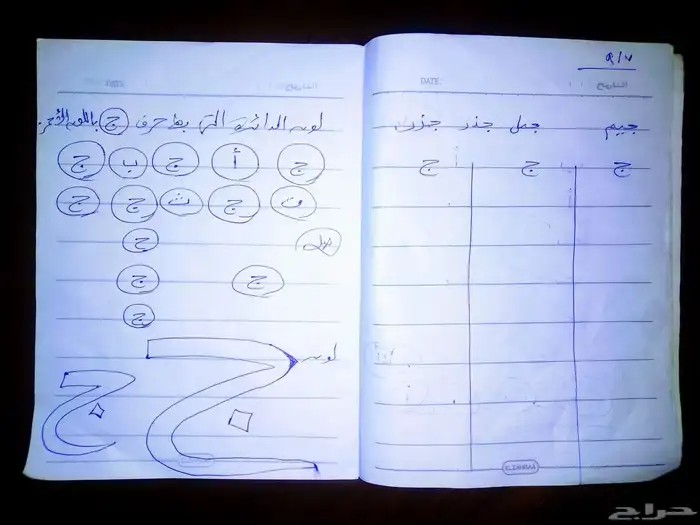 ٩/٧
DATE: التاريخ
جيم جبل جذر جزر
ج ج ج
ELZAHRAA
DATE: التاريخ
لون الدائرة التى بها حرف ج باللون الأحمر
ج أ ج ب ج
ت ج ث ج ج
صل ج
ج ج
ج
لون
ج ج
حراج